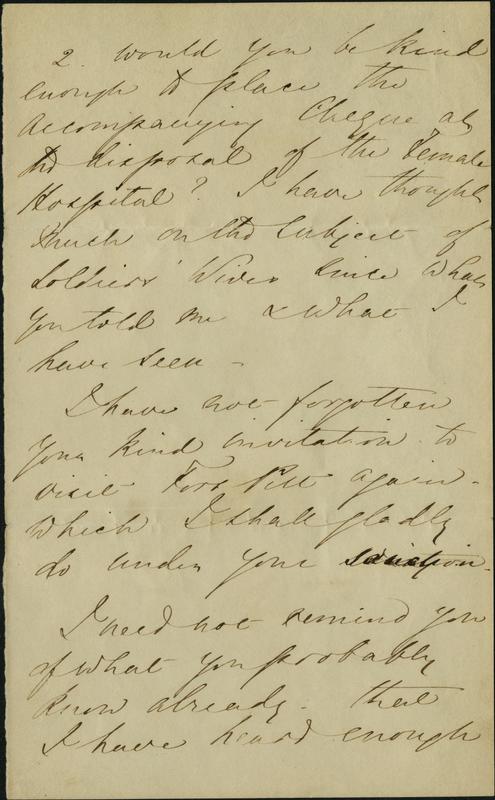 2. would you be kind
enough to place the
accompanying Cheque at
the disposal of the Female
Hospital? I have thought
much on the subject of
Soldiers' Wives since what
you told me & what I
have seen -
I have not forgotten
your kind invitation to
visit Fort Pitt again -
which I shall gladly
do under your
I need not remind you
of what you probably
know already - that
I have heard enough